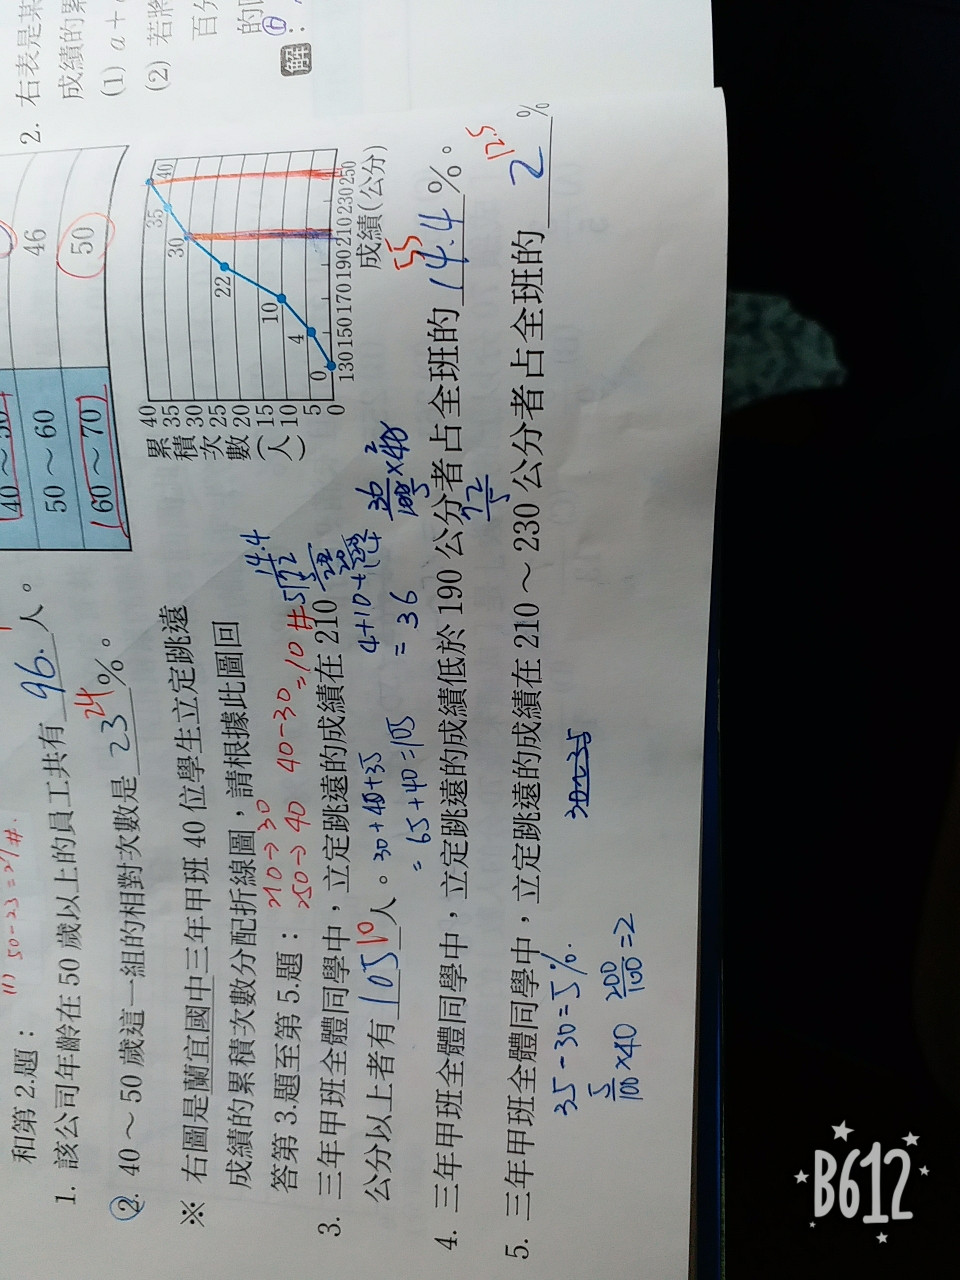 和第 2.題：
(1) 50-23=27#.
1. 該公司年齡在 50 歲以上的員工共有 96. 人。
2. 40～50 歲這一組的相對次數是 23 24 %。
※ 右圖是蘭宜國中三年甲班 40 位學生立定跳遠
成績的累積次數分配折線圖，請根據此圖回
答第 3.題至第 5.題：
210→30
250→40 40-30=10#
3. 三年甲班全體同學中，立定跳遠的成績在 210
公分以上者有 105 10 人。
30+40+35
=65+40=105
4+10+22
=36
14.4
5 72
36/100 × 40
72/5
4. 三年甲班全體同學中，立定跳遠的成績低於 190 公分者占全班的 14.4 55 %。
5. 三年甲班全體同學中，立定跳遠的成績在 210～230 公分者占全班的 2 12.5 %
30~35
35-30=5%.
5/100 ×40 200/100=2
40～50
46
50～60
50
60～70
累積次數(人)
40
35
30
25
20
15
10
5
0
0 4 10 22 30 35 40
130 150 170 190 210 230 250
成績(公分)
2. 右表是某
成績的累
(1) a+
(2) 若將
百分
的
解：
B612